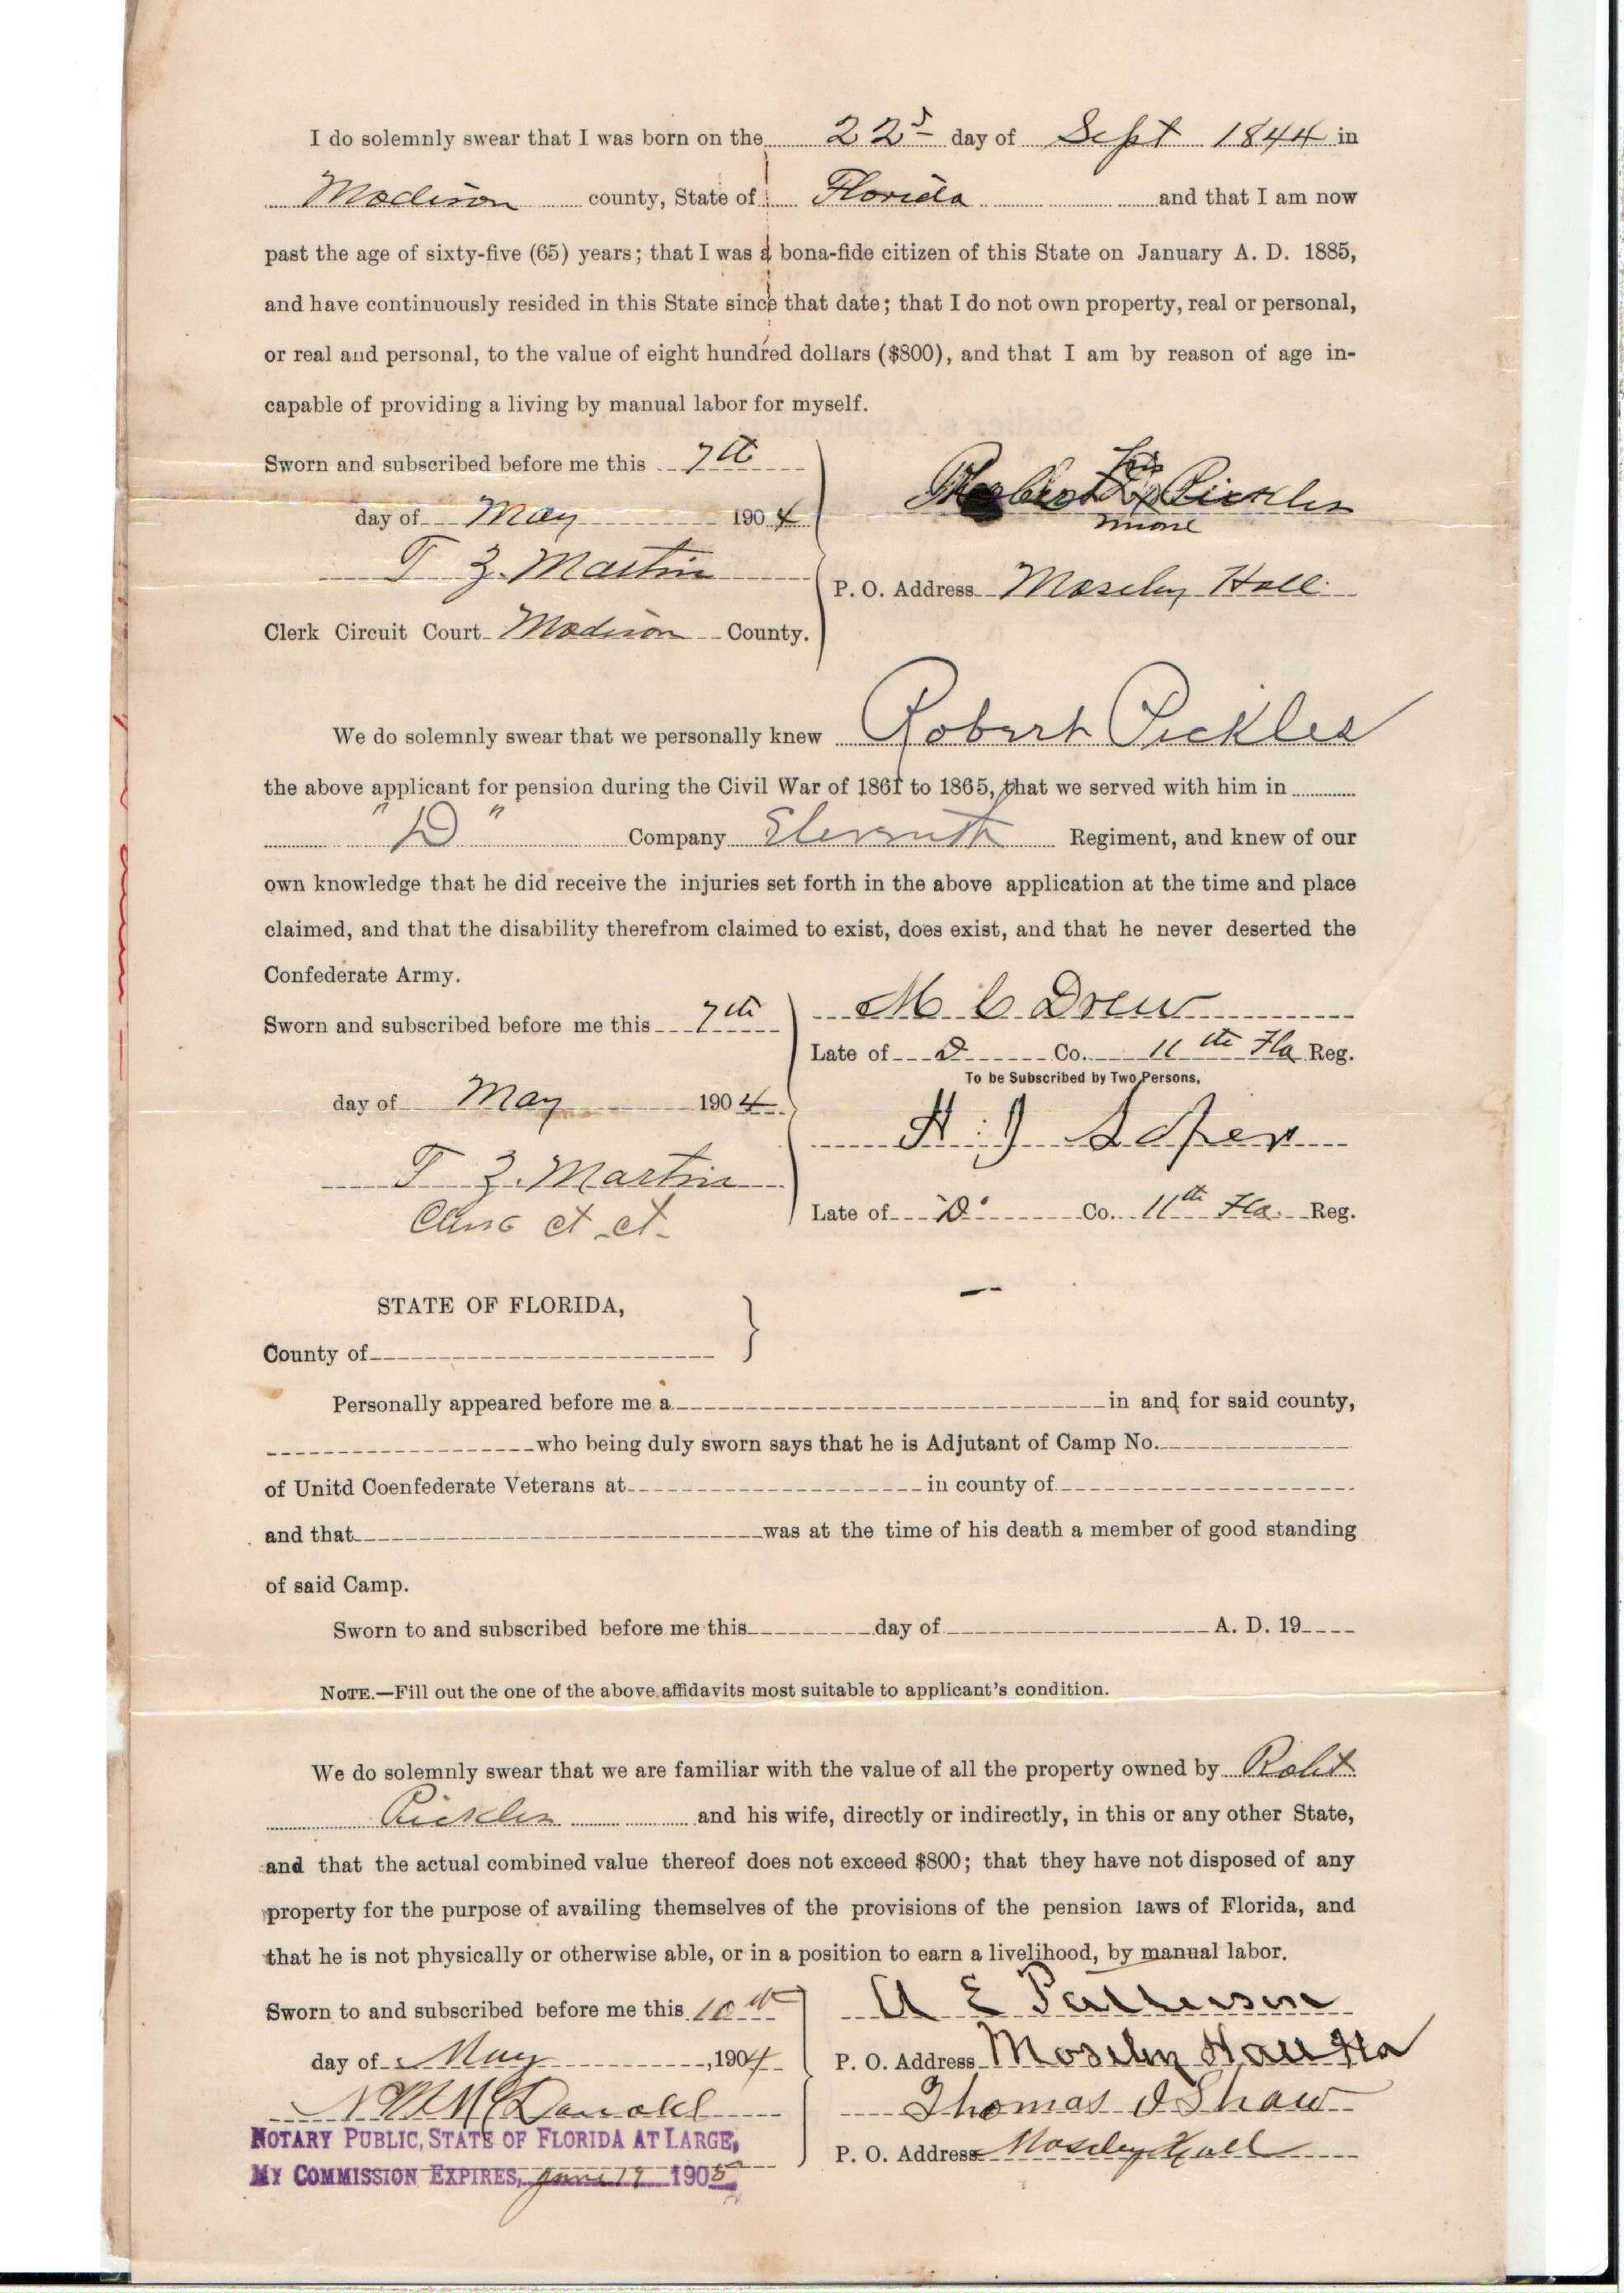 I do solemnly swear that I was born on the 22d day of Sept 1844 in
Madison county, State of Florida and that I am now
past the age of sixty-five (65) years; that I was a bona-fide citizen of this State on January A. D. 1885,
and have continuously resided in this State since that date; that I do not own property, real or personal,
or real and personal, to the value of eight hundred dollars ($800), and that I am by reason of age in-
capable of providing a living by manual labor for myself.
Sworn and subscribed before me this 7th
day of May 1904
T Z. Martin
Clerk Circuit Court Madison County.
his
Robert x Pickles
P. O. Address Mosely Hall
We do solemnly swear that we personally knew Robert Pickles
the above applicant for pension during the Civil War of 1861 to 1865, that we served with him in
"D" Company Eleventh Regiment, and knew of our
own knowledge that he did receive the injuries set forth in the above application at the time and place
claimed, and that the disability therefrom claimed to exist, does exist, and that he never deserted the
Confederate Army.
Sworn and subscribed before me this 7th
day of May 1904
T Z. Martin
Clerk Ct. Ct.
M C Drew
Late of D Co. 11th Fla Reg.
To be Subscribed by Two Persons,
H. J.
Late of "D" Co. 11th Fla. Reg.
STATE OF FLORIDA,
County of
Personally appeared before me a in and for said county,
who being duly sworn says that he is Adjutant of Camp No.
of Unitd Coenfederate Veterans at in county of
and that was at the time of his death a member of good standing
of said Camp.
Sworn to and subscribed before me this day of A. D. 19
NOTE.—Fill out the one of the above affidavits most suitable to applicant's condition.
We do solemnly swear that we are familiar with the value of all the property owned by Robt
Pickles and his wife, directly or indirectly, in this or any other State,
and that the actual combined value thereof does not exceed $800; that they have not disposed of any
property for the purpose of availing themselves of the provisions of the pension laws of Florida, and
that he is not physically or otherwise able, or in a position to earn a livelihood, by manual labor.
Sworn to and subscribed before me this 10th
day of May, 1904
McDonald
NOTARY PUBLIC, STATE OF FLORIDA AT LARGE,
MY COMMISSION EXPIRES, June 19 1905
A E Patterson
P. O. Address Mosely Hall Fla
Thomas J Shaw
P. O. Address Mosely Hall